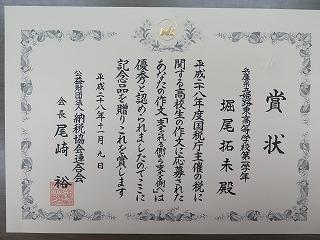 賞状
兵庫県立姫路東高等学校第一学年
堀尾拓未殿
平成二八年度国税庁主催の税に
関する高校生の作文に応募された
あなたの作文「支えられる側から支える側へ」は
優秀と認められましたのでここに
記念品を贈りこれを賞します
平成二十八年十一月九日
公益財団法人納税協会連合会
会長尾崎裕